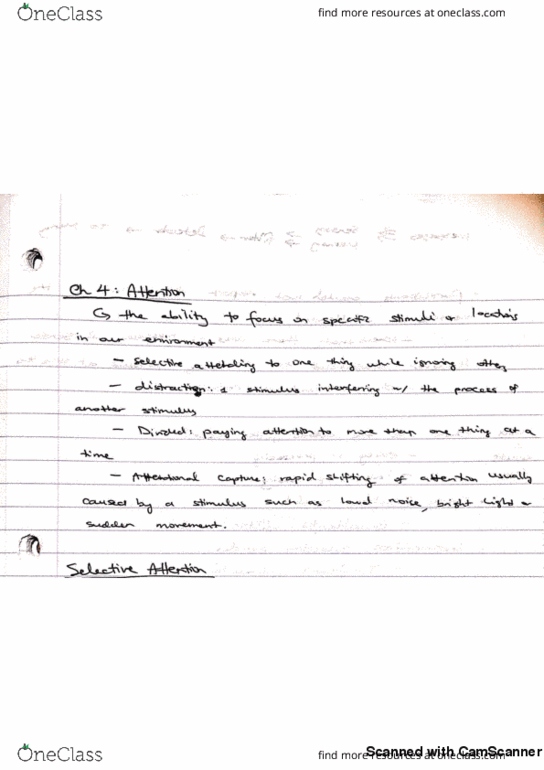 OneClass
find more resources at oneclass.com
Ch 4: Attention
↳ the ability to focus on specific stimuli or locations
in our environment
- selective: attending to one thing while ignoring others
- distraction: 1 stimulus interfering w/ the process of
another stimulus
- Divided: paying attention to more than one thing at a
time
- Attentional capture: rapid shifting of attention usually
caused by a stimulus such as loud noise, bright light or
sudden movement.
Selective Attention
OneClass
find more resources at oneclass.com
Scanned with CamScanner